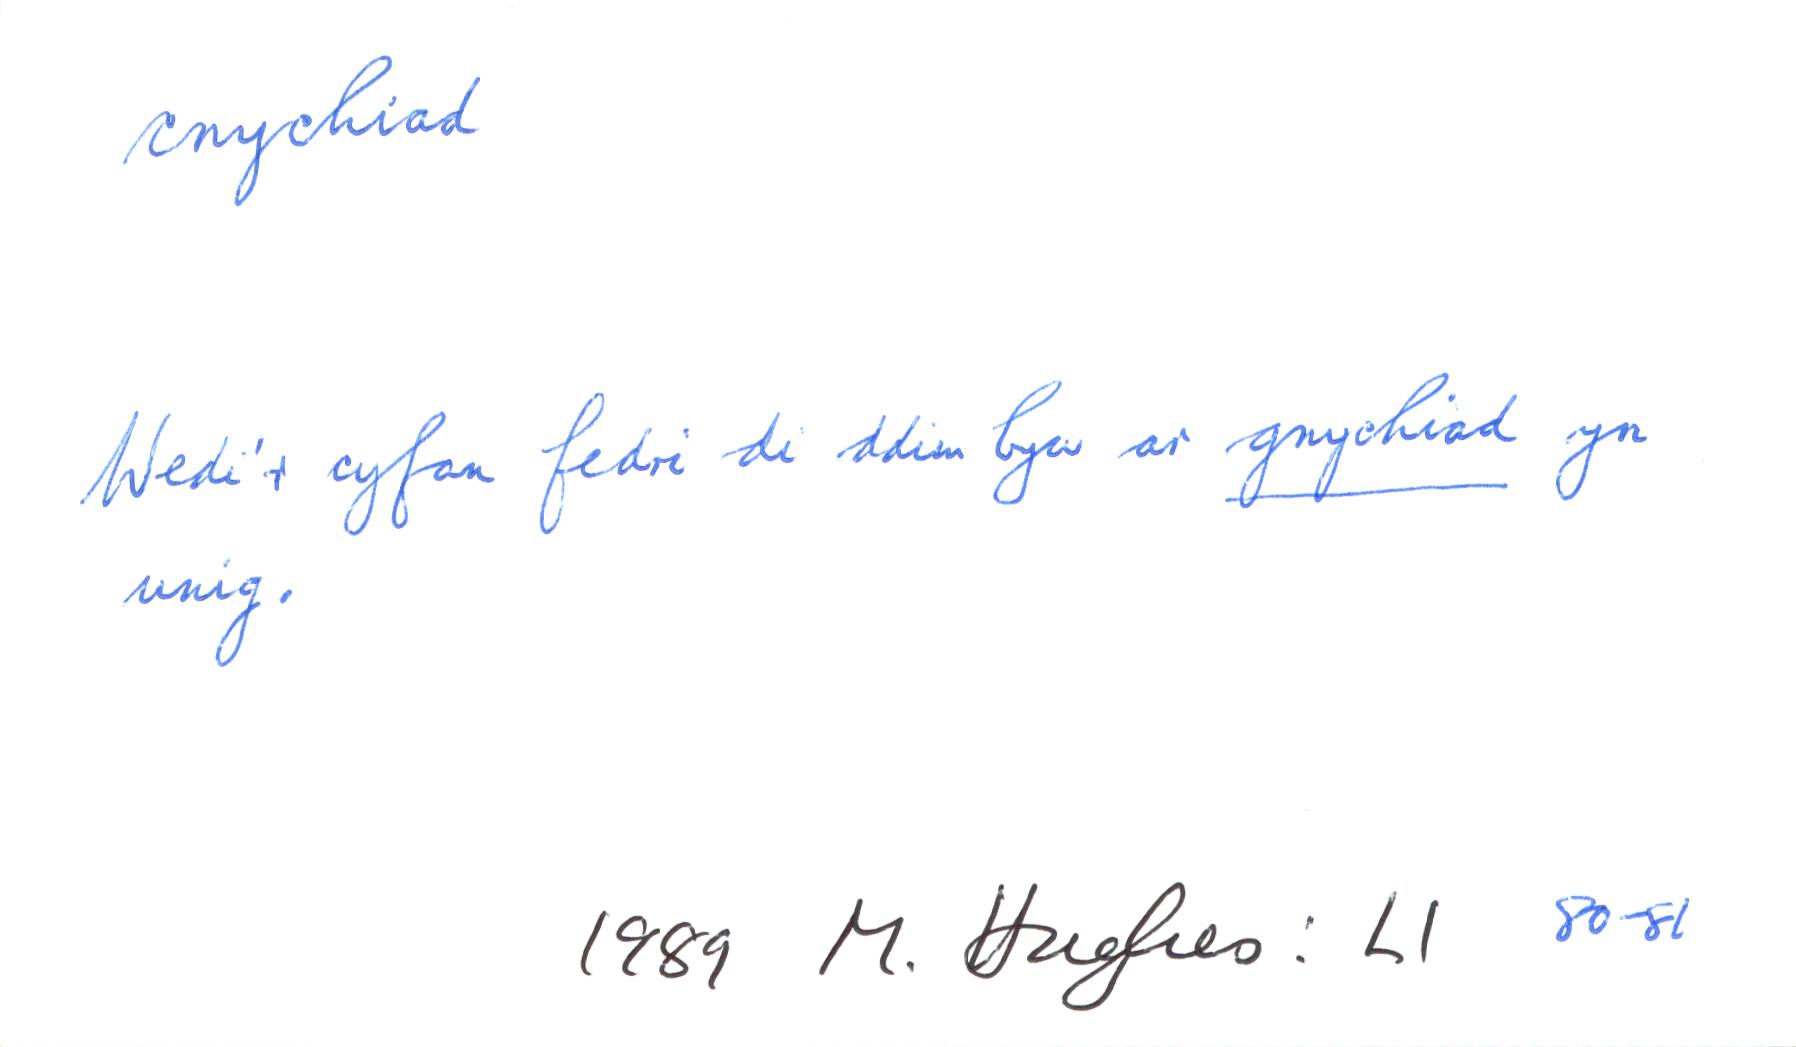 cnychiad
Wedi'r cyfan fedri di ddim byw ar gnychiad yn
unig.
1989 M. Hughes: Ll 80-81